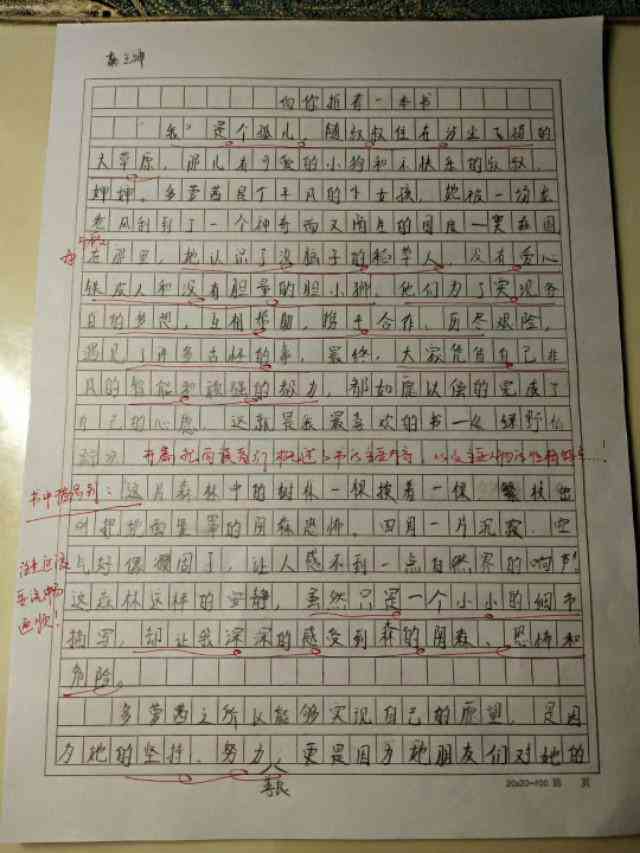 向你推荐一本书
"我"是个孤儿,随叔叔住在
大草原,那儿有可爱的小狗和不快乐的叔叔、
婶婶。多萝茜是个平凡的小女孩,她被一场龙
卷风刮到了一个神奇而又陌生的国度——奥兹国
在那里,她认识了没脑子的稻草人,没有爱心
铁皮人和没有胆量的胆小狮,他们为了实现各
自的梦想,互相帮助,携手合作,历尽艰险,
遇见了许多古怪的事,最终,大家凭借自己非
凡的智能和顽强的毅力,都如愿以偿的完成了
自己的心愿。这就是我最喜欢的书——《绿野仙
踪》。开篇就向读者们概述了书的主要内容,以及主要人物的性格特
书中描写到:这片森林中的树林一棵挨着一棵 繁枝
叶把地面笼罩的阴森恐怖。四周一片沉寂,空
气好像凝固了,让人感不到一点自然界的响声
这森林这样的安静,虽然只是一个小小的细节
描写,却让我深深的感受到森的阴森、恐怖和
危险。
注意应该
要读
通顺!
多萝茜之所以能够实现自己的愿望,是因
为她的坚持、努力,更是因为她朋友们对她的
20x20=400 第 页